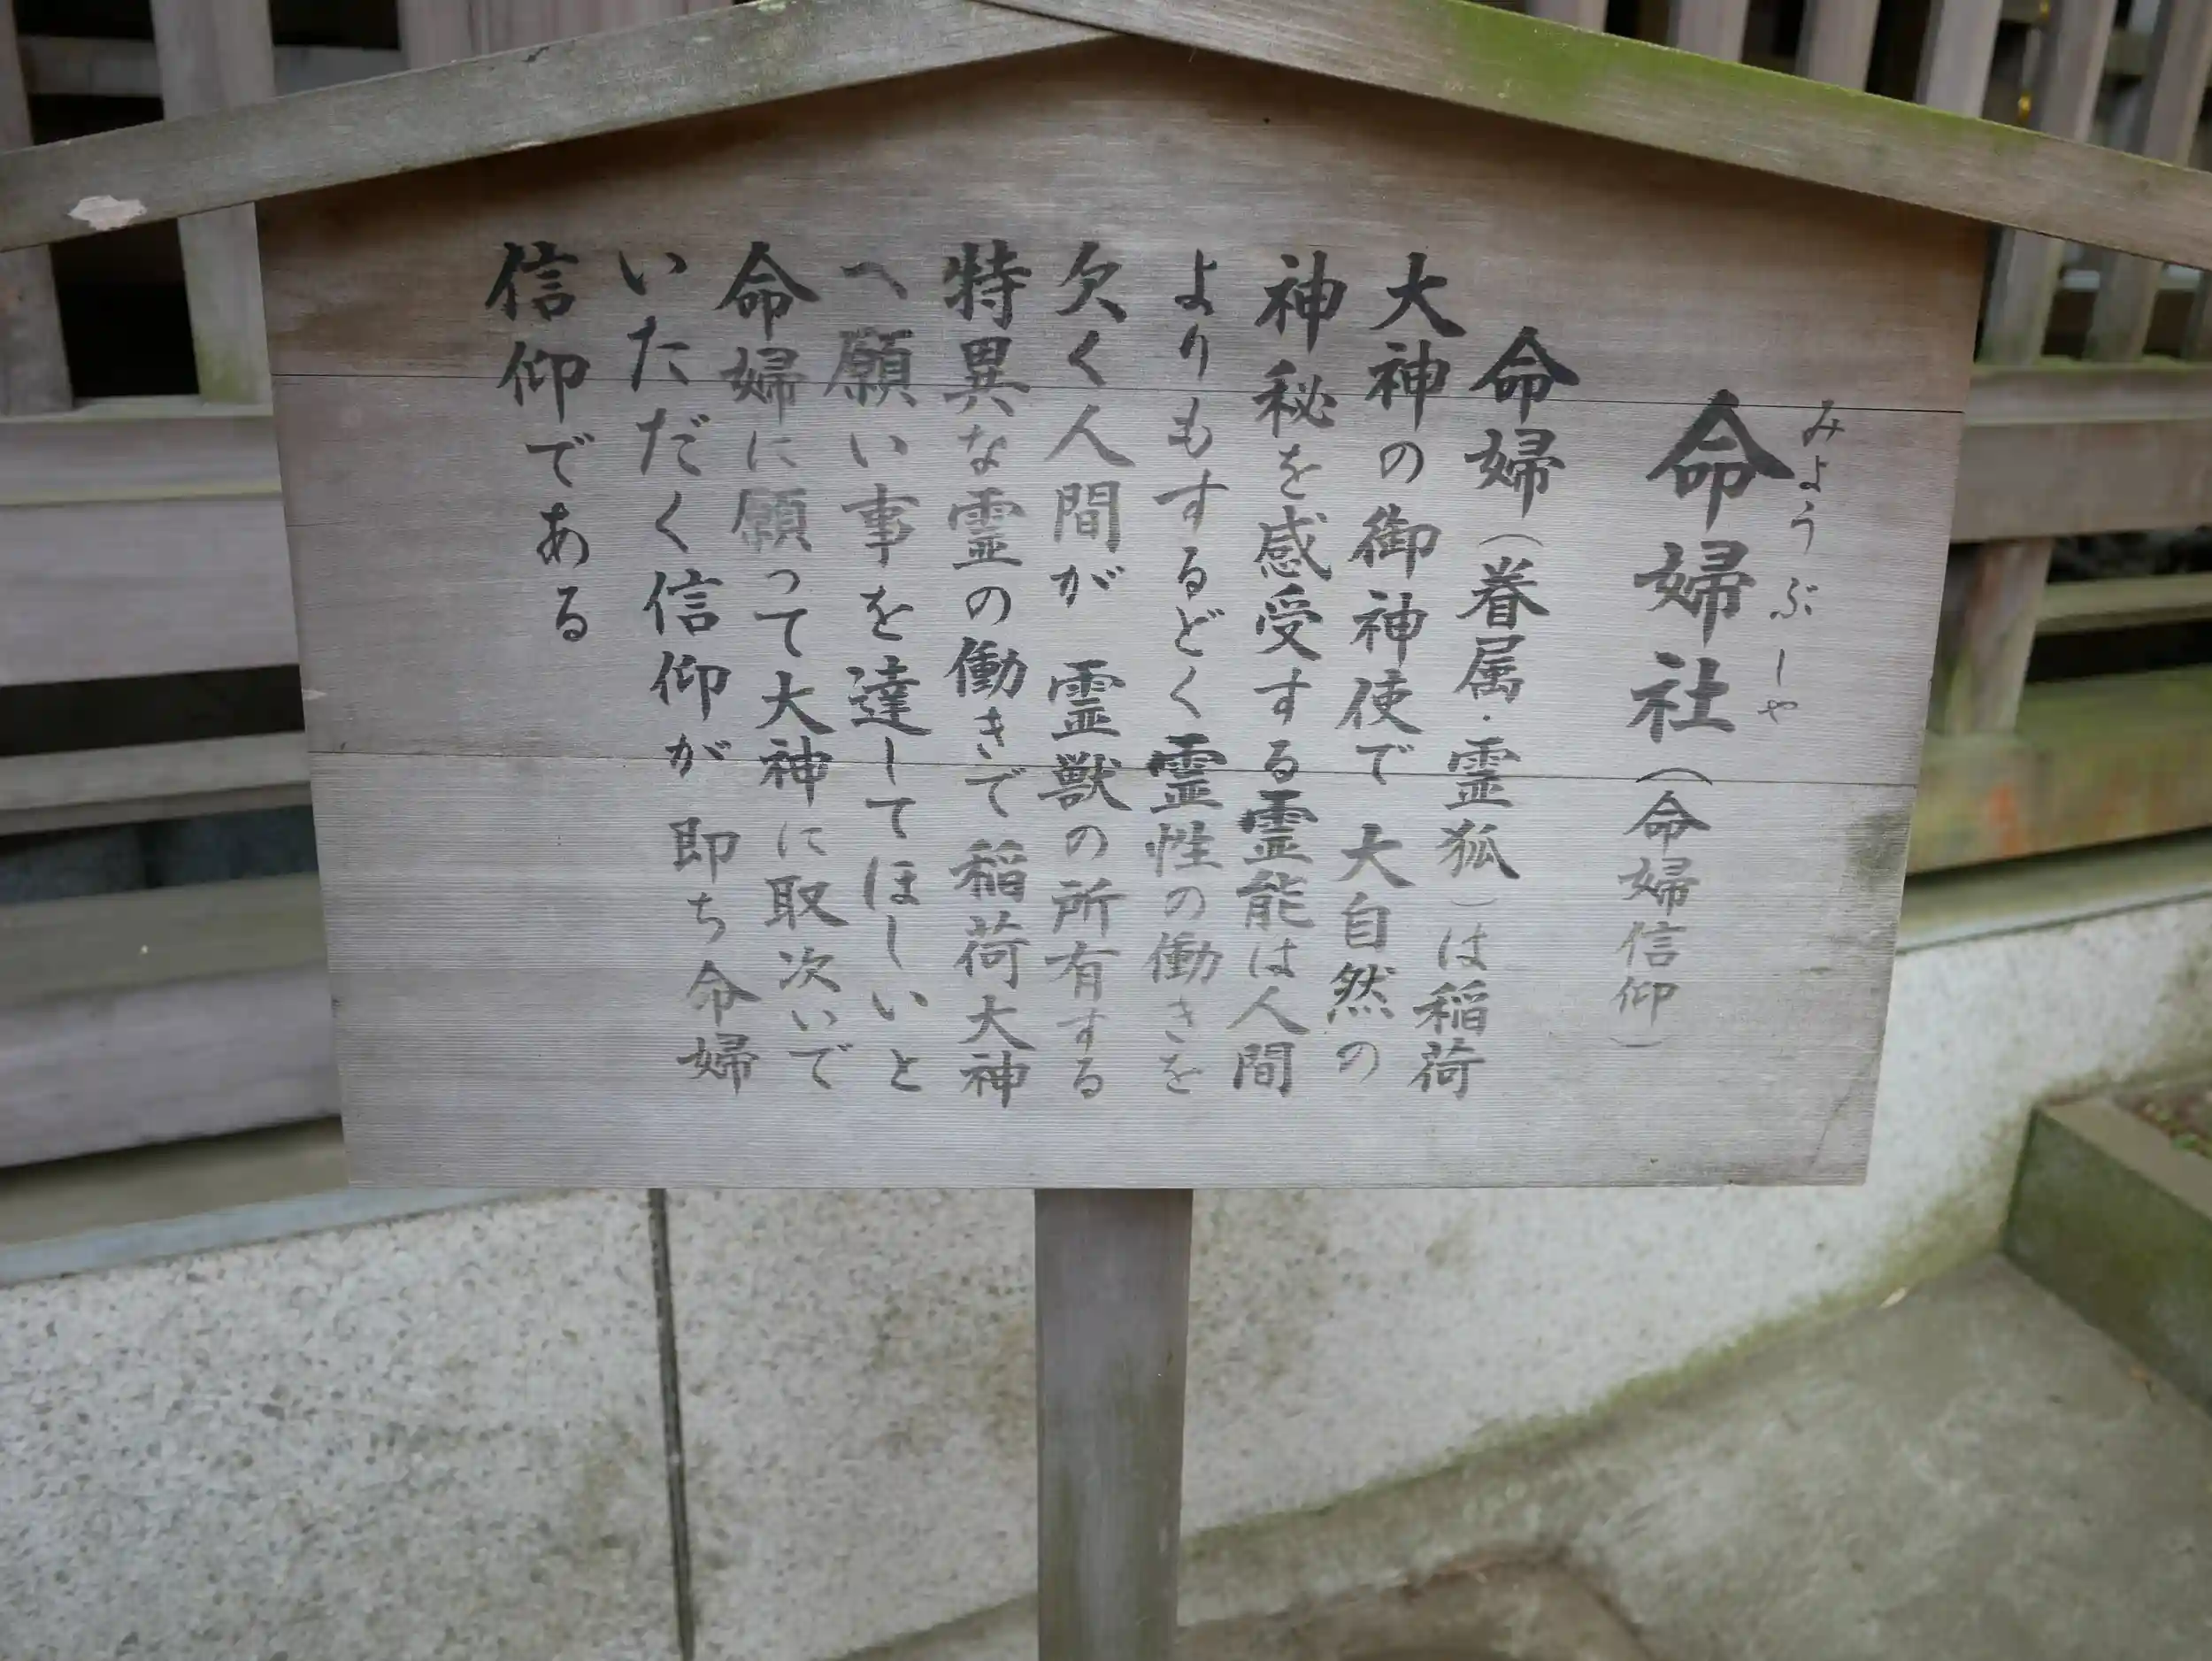 みようぶしや
命婦社（命婦信仰）
命婦（眷属・霊狐）は稲荷
大神の御神使で 大自然の
神秘を感受する霊能は人間
よりもするどく霊性の働きを
欠く人間が 霊獣の所有する
特異な霊の働きで稲荷大神
へ願い事を達してほしいと
命婦に願って大神に取次いで
いただく信仰が即ち命婦
信仰である